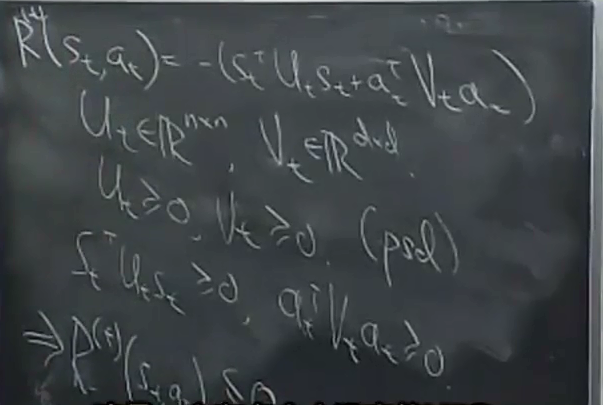 R^{(t)}(s_t, a_t) = -(s_t^T U_t s_t + a_t^T V_t a_t)
U_t ∈ ℝ^{n×n}, V_t ∈ ℝ^{d×d}.
U_t ≥ 0, V_t ≥ 0. (psd)
s_t^T U_t s_t ≥ 0, a_t^T V_t a_t ≥ 0.
⇒ R^{(t)}(s_t, a_t) ≤ 0